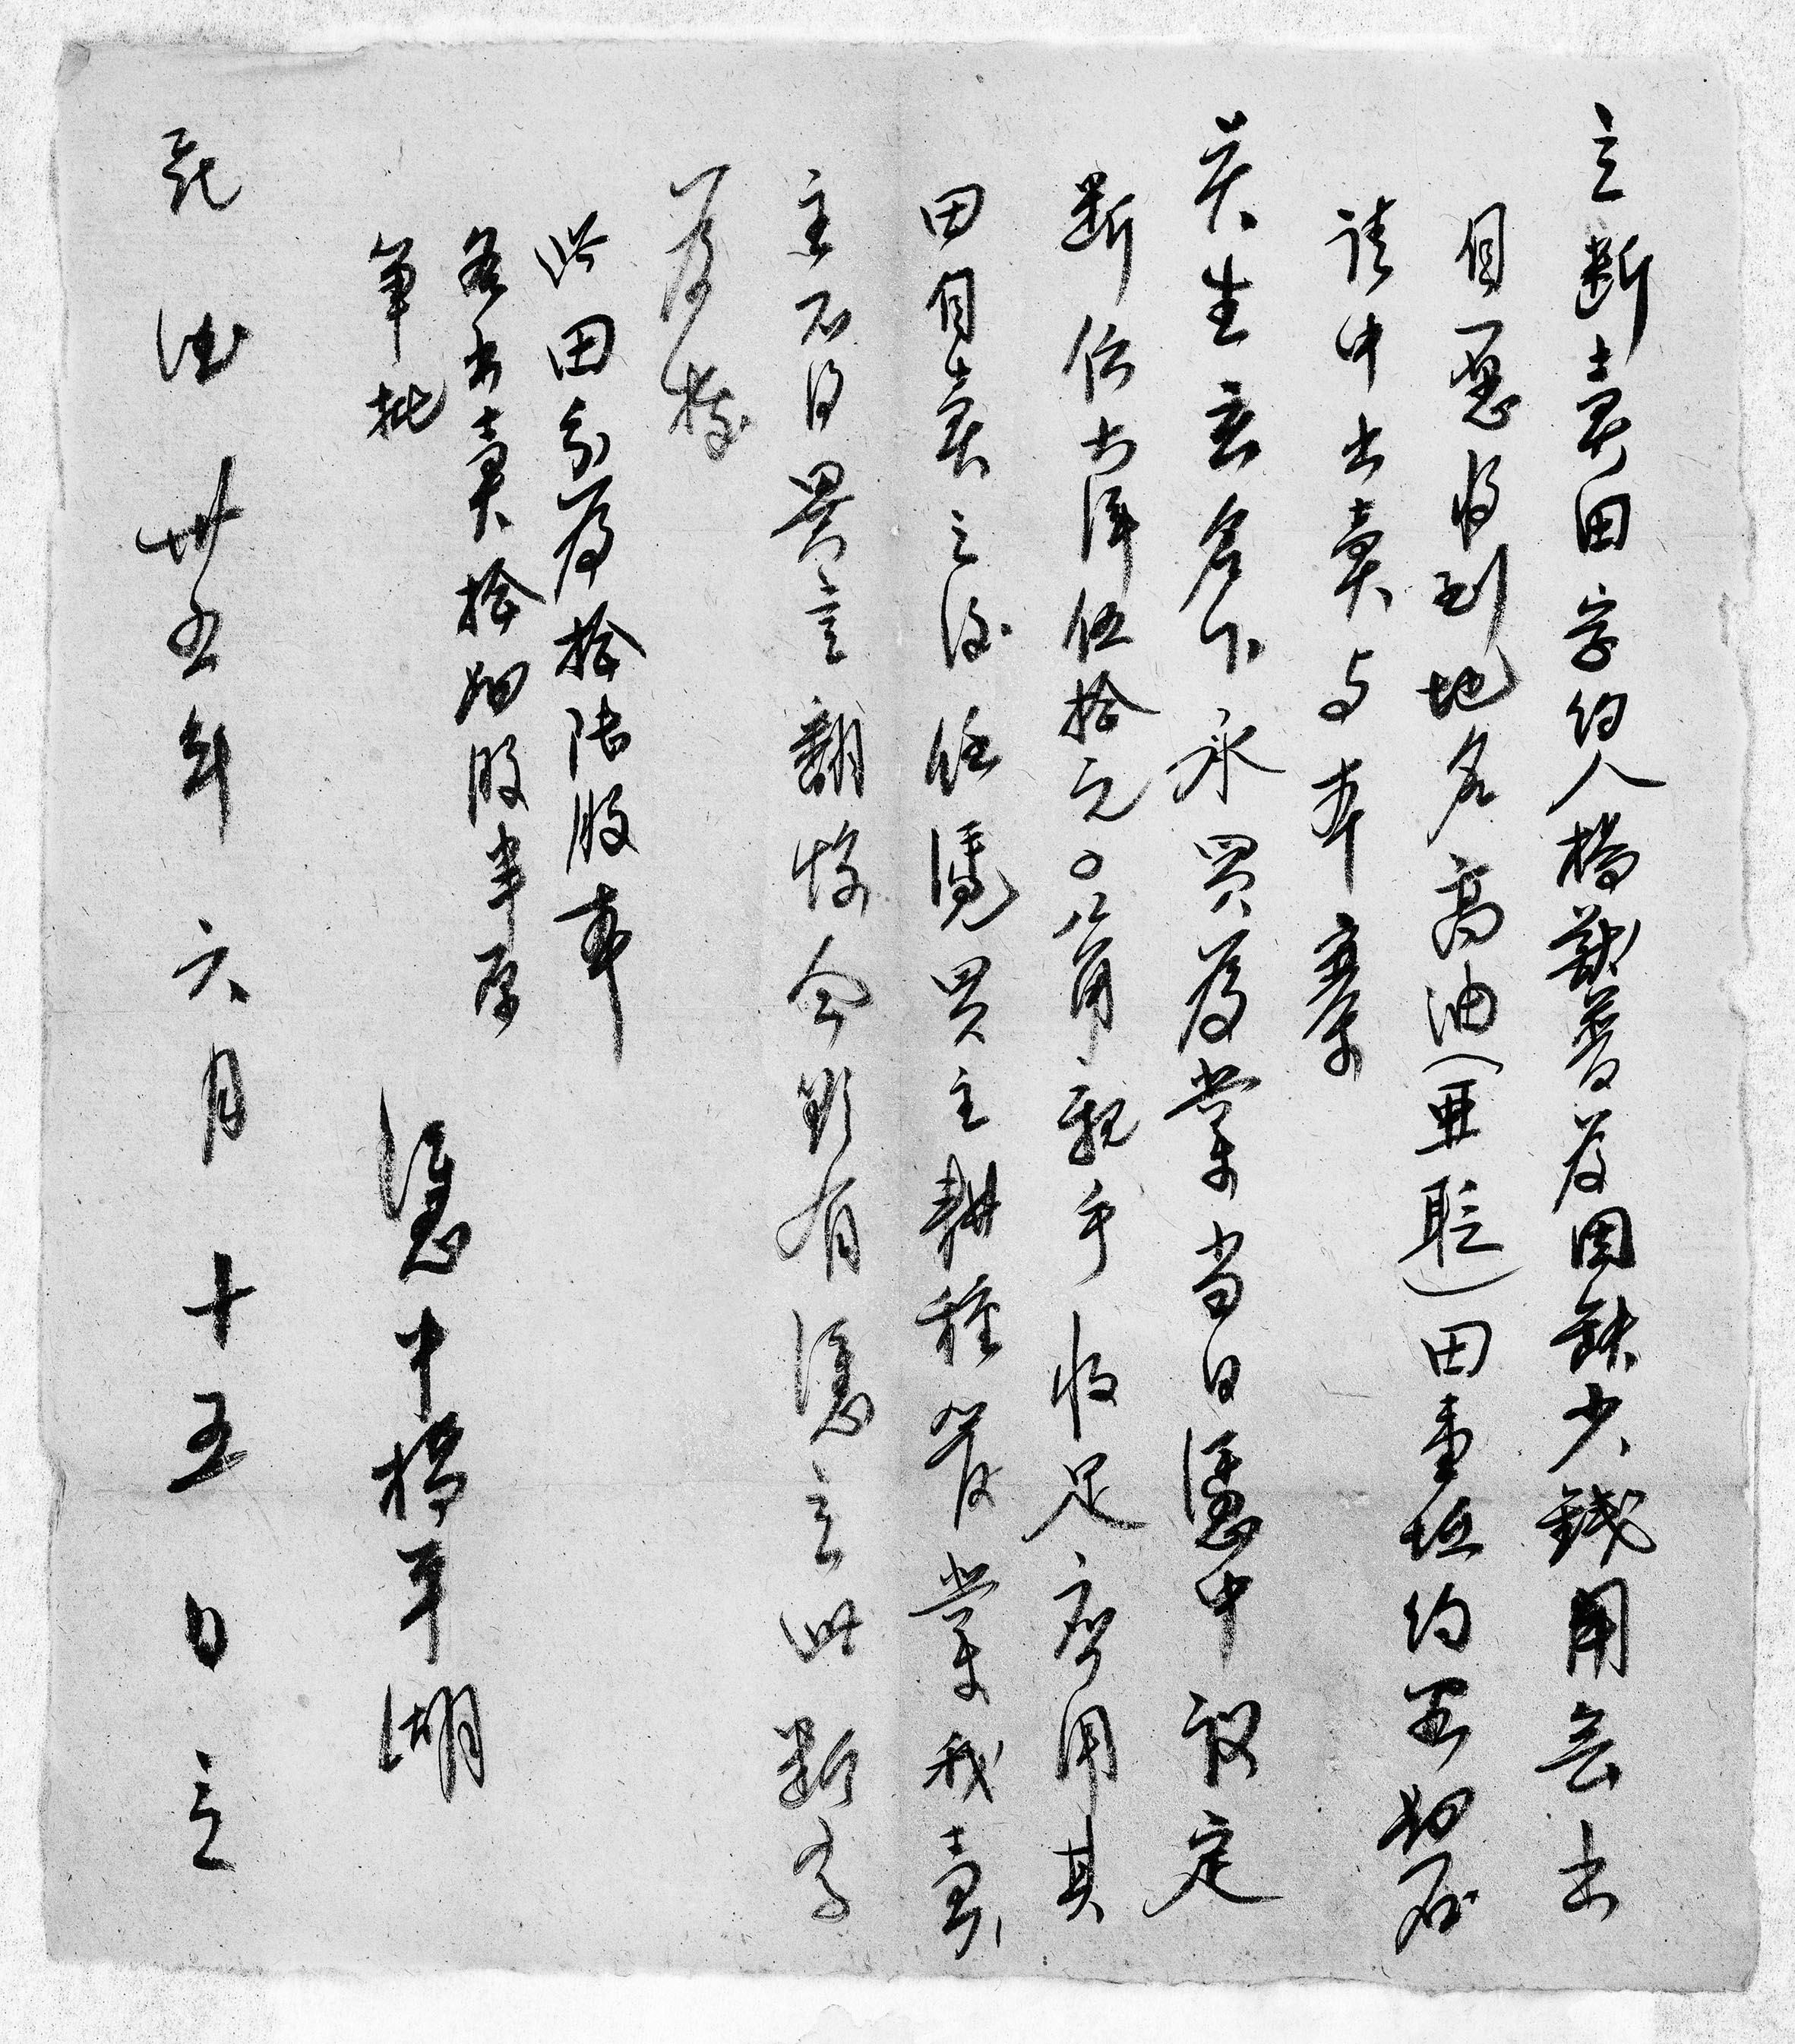 立断賣田字约人楊獻普為因缺少錢用无出
自愿將到地名高油（亜聪）田壹坵约圣拗石
請中出賣与本寨
英生玄名下承買為業当日憑中議定
断價大洋伍拾元〇八角親手收足應用其
田自賣之後任憑買主耕種管業我賣
主不得異言翻悔今欲有憑立此断字
為據
此田分為拾陆股本
名出賣拾捌股半原
筆批
憑中楊平湖
民國卅五年六月十五日立